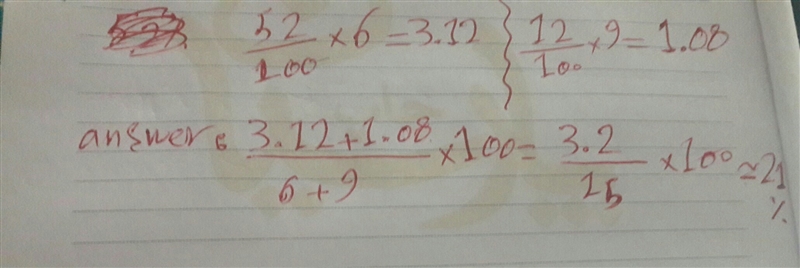 52/100 ×6=3.12 } 12/100 ×9=1.08
answer: (3.12+1.08)/(6+9) ×100= 3.2/15 ×100 ≃21%